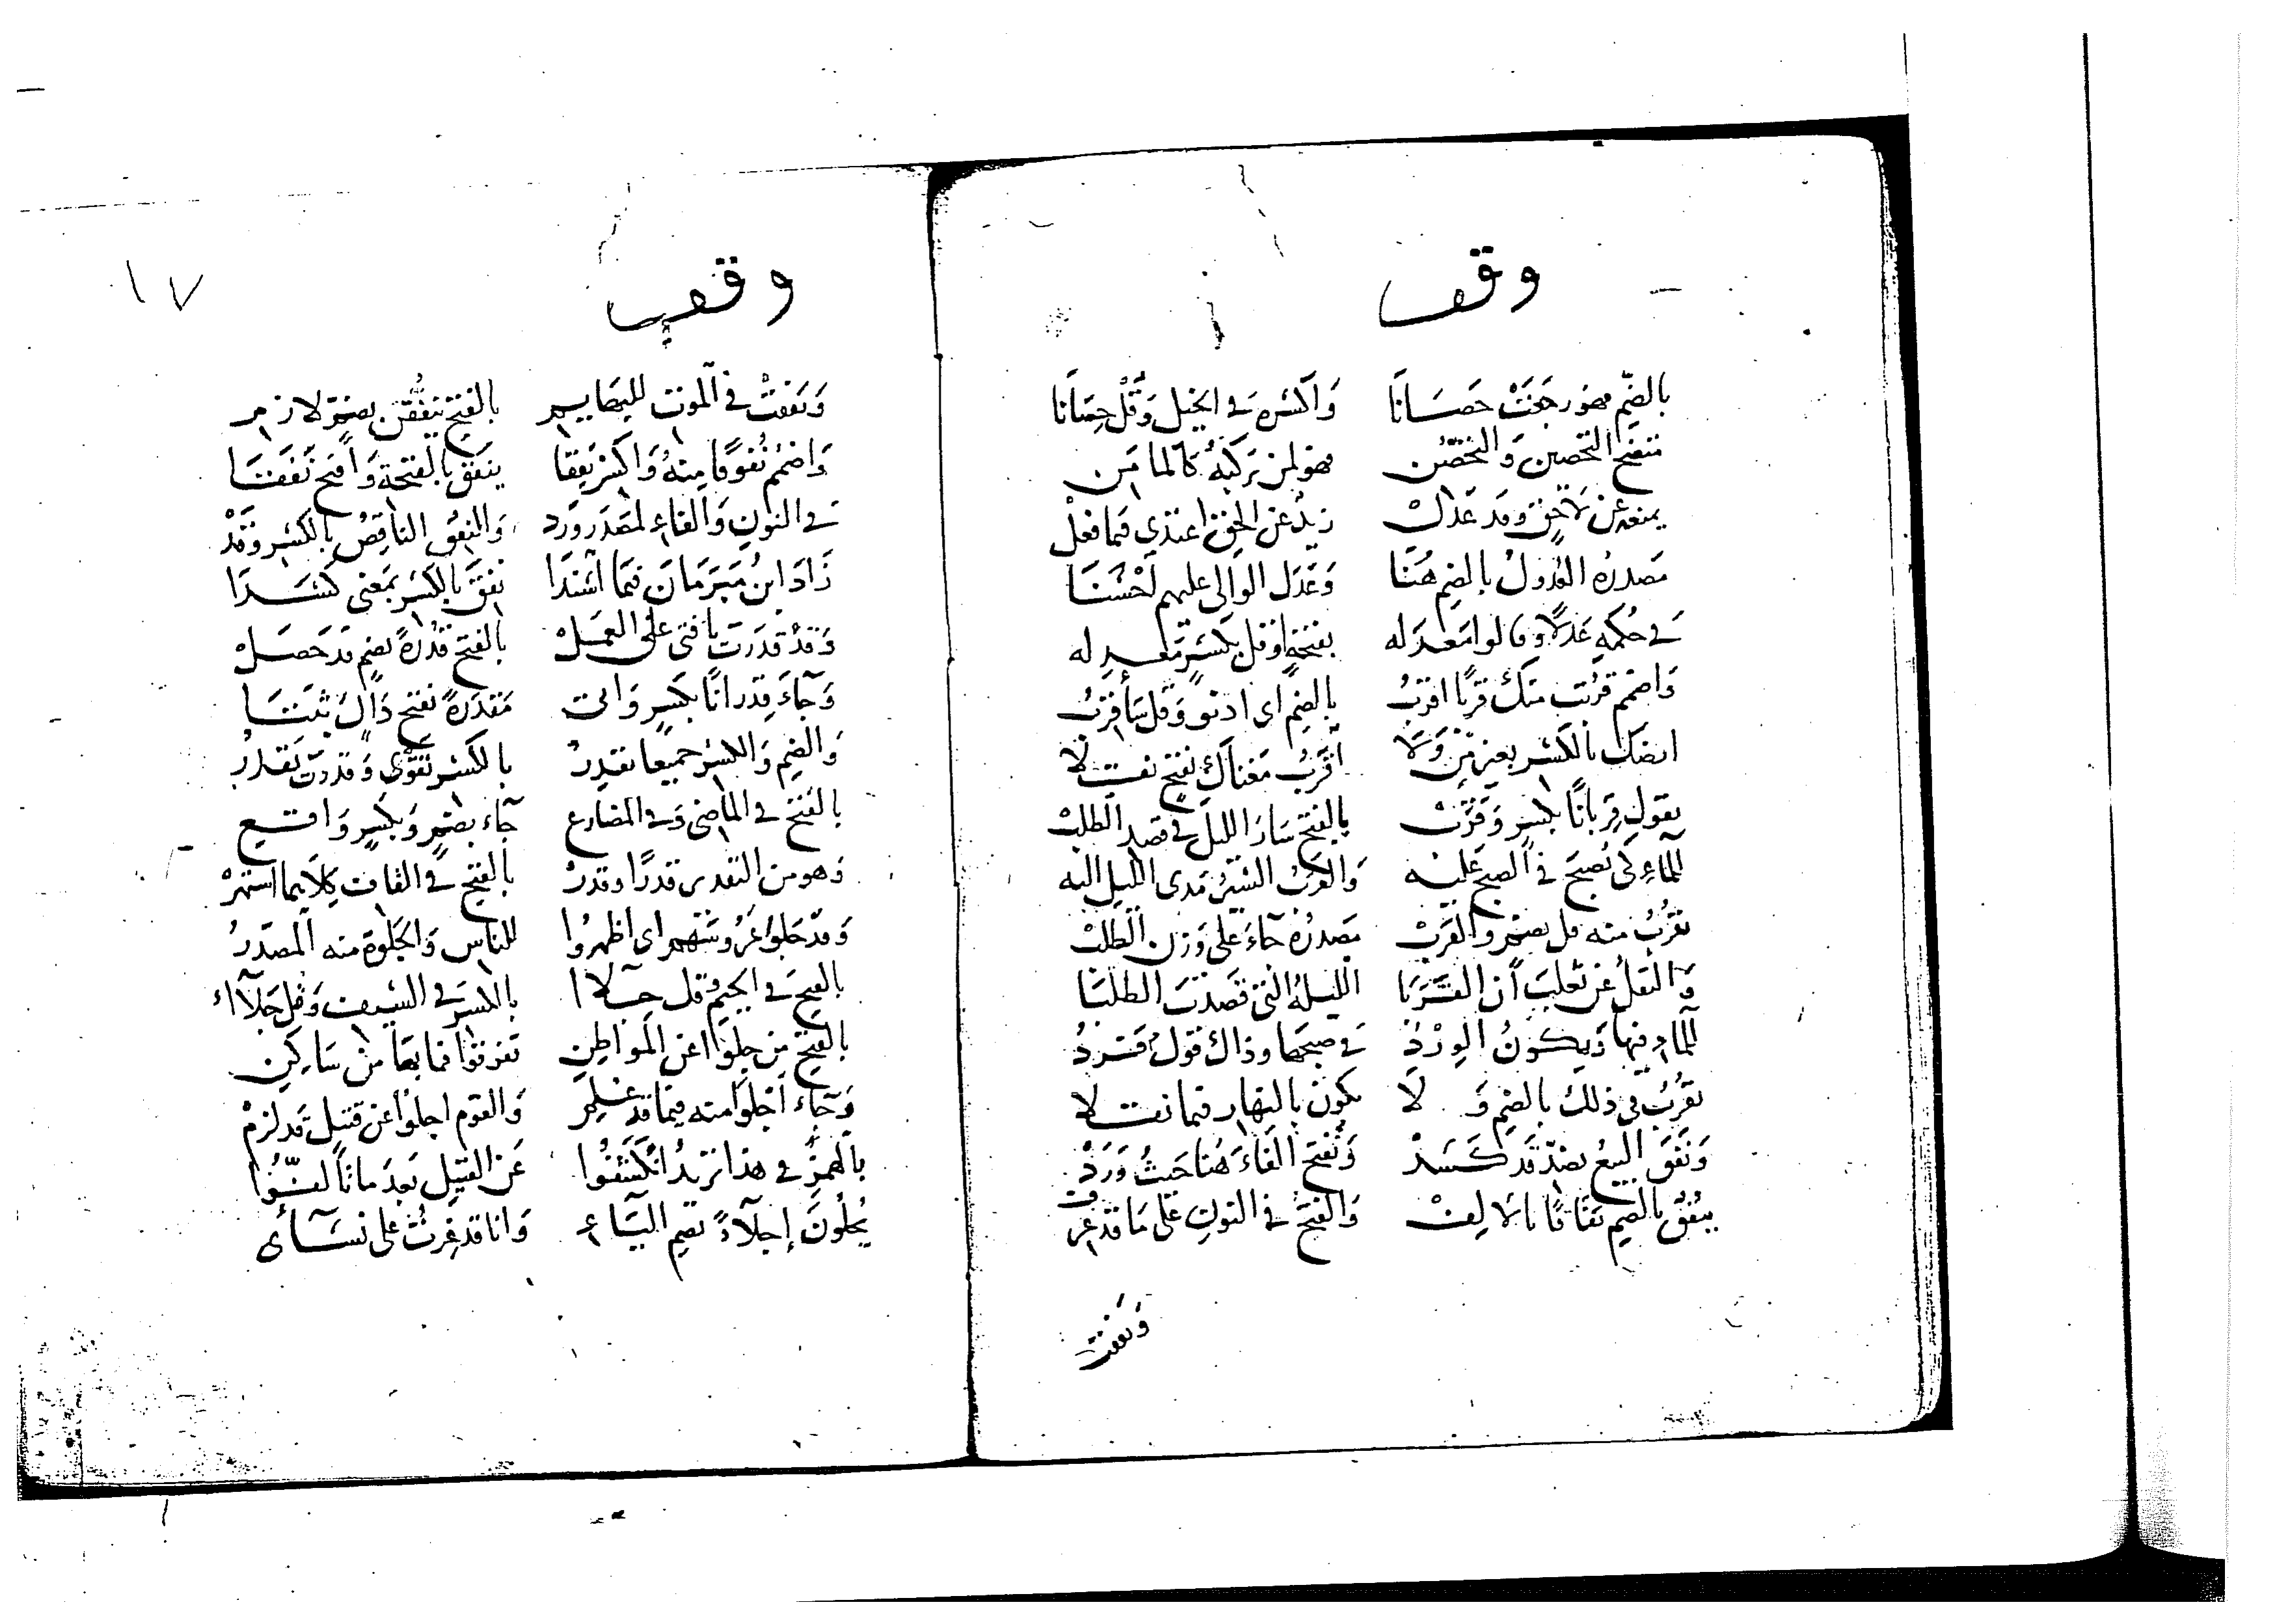 وقف
بالضم فهو رجعت حصانا وَاكسره في الخيل وَقُل حِصَانا
التحصين وَالتحصّن فهو لمن تركبه كالمامن
يمنعه عن لاحق وقد عَدَل زيدٌ عن الحق اعتدى فما فعل
مَصدره العُدول بالضم هُنَا وَعَدَل الوالي عليهم احْسَنَا
في حُكمِهِ عَدلاً وقالوا مَعدَله بفتحةٍ او قل بكسرٍ مَعدِله
وَاضمم قربت منك قربًا اقرُبُ بالضمِ اي ادنو وَقل سَأقرُبُ
بالكسر بعير مَين وَلا أقرَبُ مَعناك بفتح نفت لا
تقول قِربانًا بكسرٍ وَقَرَبْ بالفتح سَارَ الليل في قصد الطلبْ
الماءِ كي تُصبحَ في الصبح عليه وَالقرَبُ السَّيرُ مَدى الليل اليه
تقرُبُ منه قل بضمٍ والقرَبْ مَصدرُه جاءَ على وَزن الطلبْ
وَالنقلُ عن ثعلبَ أن القَرَبَا الليلةُ التي قصدتَ الطلبَا
للماءِ فيها وَيكونُ الوِرْدُ في صبحها وذاك قولٌ فَردُ
تقرُبُ في ذلك بالضمِ وَ لا يكون بالنهار فيما نقلا
وَنَفَقَ البيعُ بضدّ قد كَسَدْ وَتفتح الفاءَ هُنا حيثُ وَرَدْ
ينفُقُ بالضم نَفَاقًا وَالفتح في النون عَلى مَا قد عرف
وَنفقت
وقف
١٧
وَنَفقتْ في الموت للبهايم بالفتح تنفقن بضمٍ لازم
وَاضمُم نُفوقًا مِنهُ وَاكسر نَفِقا ينفَق بالفتحة وَافتح نَفَقَا
في النونِ وَالفاءِ لمصدَرٍ وَرَد وَالنفِق الناقِصُ بالكسرِ وَقَدْ
زادَ ابنُ مَبرَمَانَ فيمَا أنشدَا نفِقَ بالكسرِ بمعنى كَسَدَا
وَقدْ قدَرت يا فتى على العمَلْ بالفتح قُدرةً بضمٍ قد حَصَلْ
وَجاءَ قِدرانًا بكسرٍ وَاتى مَقدرَةً بفتح دَالٍ ثبتَا
وَالضمِ وَالكسر جميعًا تقدِرُ بالكسرِ تقوى وَقدرت تقدرُ
بالفتح في الماضي وَفي المضارع جاء بضمٍ وَبكسرٍ واقع
وَهو من التقدير قدرًا وقدَرْ بالفتح في القاف كِلاهما اشتهرْ
وَقد جَلوا عَروسَهم اي اظهروا للناس وَالجَلوة منه المصدرُ
بالفتح في الجيم وقل جلاا بالكسر في السيف وَقل جَلاآء
بالفتح مِن جلوا عن المواطن تفرقوا فما بها من ساكن
وَجاء اجلوا منه فيما قد علم وَالقوم اجلوا عن قتيل قد لزم
بالهمز في هذا تريدُ انكشفُوا عَن القتيل بعد ما التفّوا
يُجلُونَ إجلاءً بضمِ الياء وَانا قد غِرتُ على نسَائي